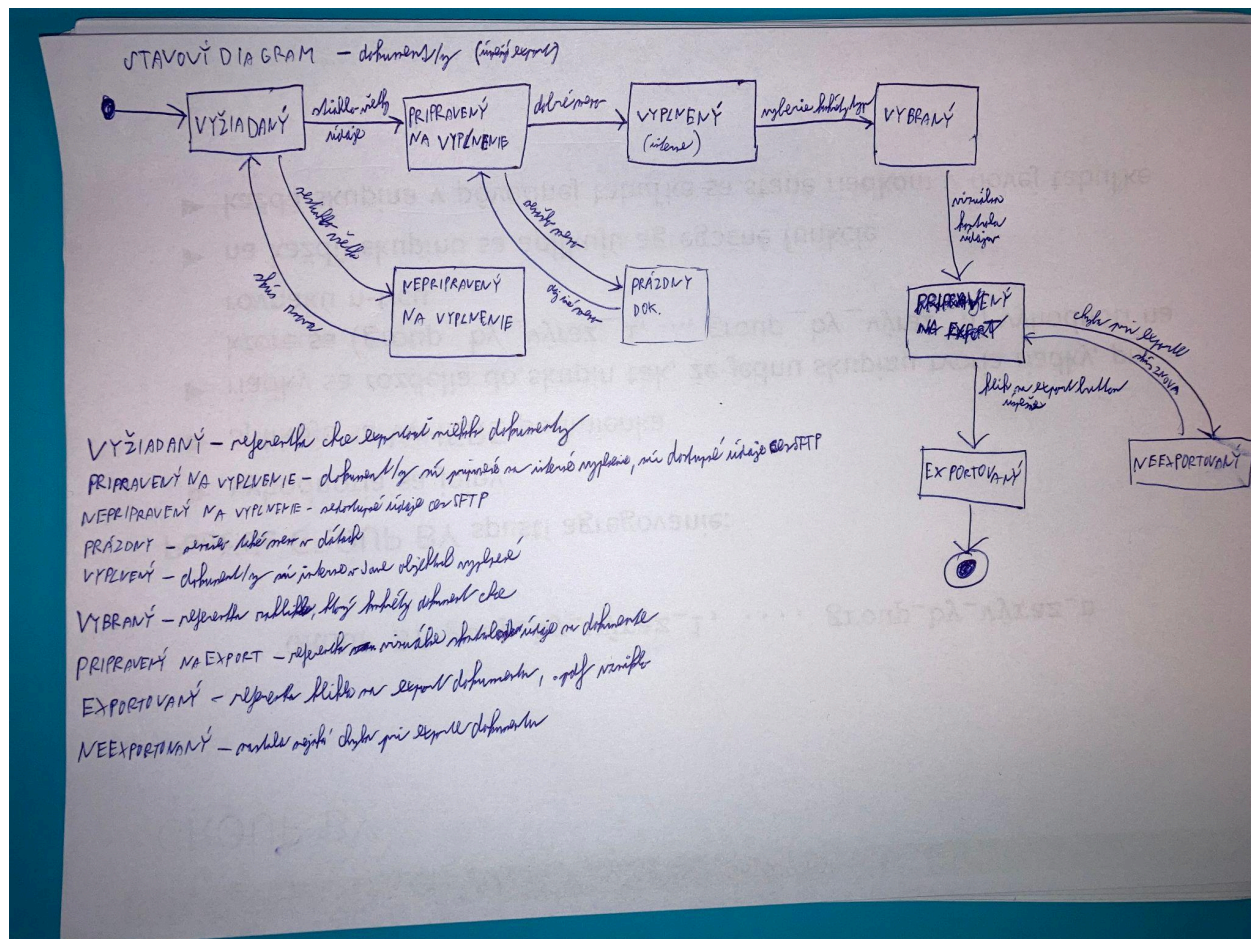 STAVOVÝ DIAGRAM – dokument/y (úspešný export)
VYŽIADANÝ
stiahlo všetky
údaje
PRIPRAVENÝ
NA VYPLNENIE
dobré meno
VYPLNENÝ
(interne)
vyberie konkrétny typ
VYBRANÝ
nestiahlo všetko
skús znova
NEPRIPRAVENÝ
NA VYPLNENIE
nenašlo meno
daj iné meno
PRÁZDNY
DOK.
vizuálna
kontrola
údajov
PRIPRAVENÝ
NA EXPORT
chyba pri exporte
skús ZNOVA
NEEXPORTOVANÝ
klik na export button
úspešne
EXPORTOVANÝ
VYŽIADANÝ – referentka chce exportovať niektoré dokumenty
PRIPRAVENÝ NA VYPLNENIE – dokument/y sú pripravené na interné vyplnenie, sú dostupné údaje cez SFTP
NEPRIPRAVENÝ NA VYPLNENIE – nedostupné údaje cez SFTP
PRÁZDNY – nenašlo také meno v dátach
VYPLNENÝ – dokument/y sú interne v Jave objektoch vyplnené
VYBRANÝ – referentka naklikla, ktorý konkrétny dokument chce
PRIPRAVENÝ NA EXPORT – referentka vizuálne skontroluje údaje na dokumente
EXPORTOVANÝ – referentka klikla na export dokumentu, .pdf vzniklo
NEEXPORTOVANÝ – nastala nejaká chyba pri exporte dokumentu